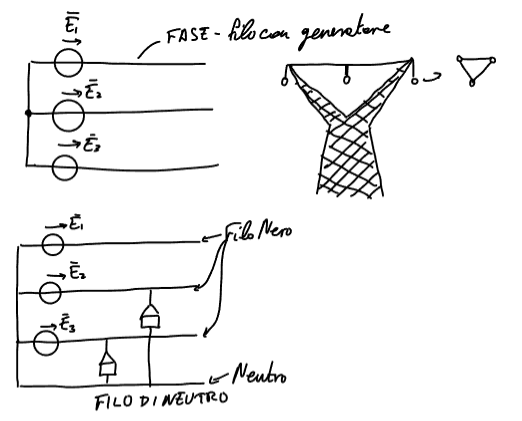 Ē₁
FASE - filo con generatore
Ē₂
Ē₃
Ē₁
Filo Nero
Ē₂
Ē₃
Neutro
FILO DI NEUTRO